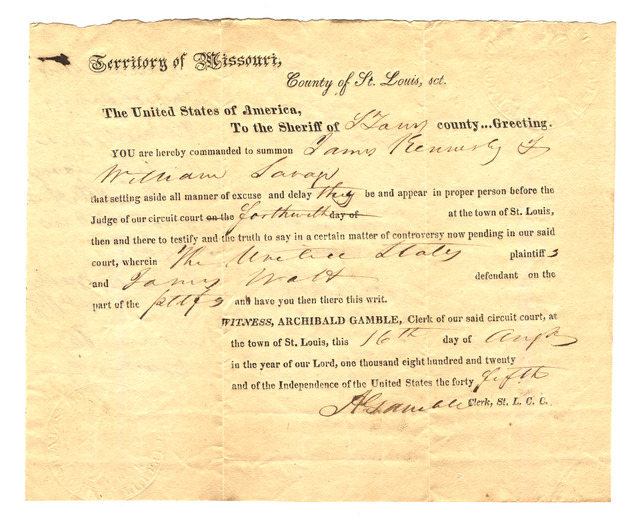 Territory of Missouri,
County of St. Louis, sct.
The United States of America,
To the Sheriff of St Louis county...Greeting.
YOU are hereby commanded to summon James Kennerly &
William Savage
that setting aside all manner of excuse and delay they be and appear in proper person before the
Judge of our circuit court on the forthwith day of at the town of St. Louis,
then and there to testify and the truth to say in a certain matter of controversy now pending in our said
court, wherein The United States plaintiff
and James Watt defendant on the
part of the pltf and have you then there this writ.
WITNESS, ARCHIBALD GAMBLE, Clerk of our said circuit court, at
the town of St. Louis, this 16th day of Augt
in the year of our Lord, one thousand eight hundred and twenty
and of the Independence of the United States the forty fifth
A Gamble Clerk, St. L. C. C.